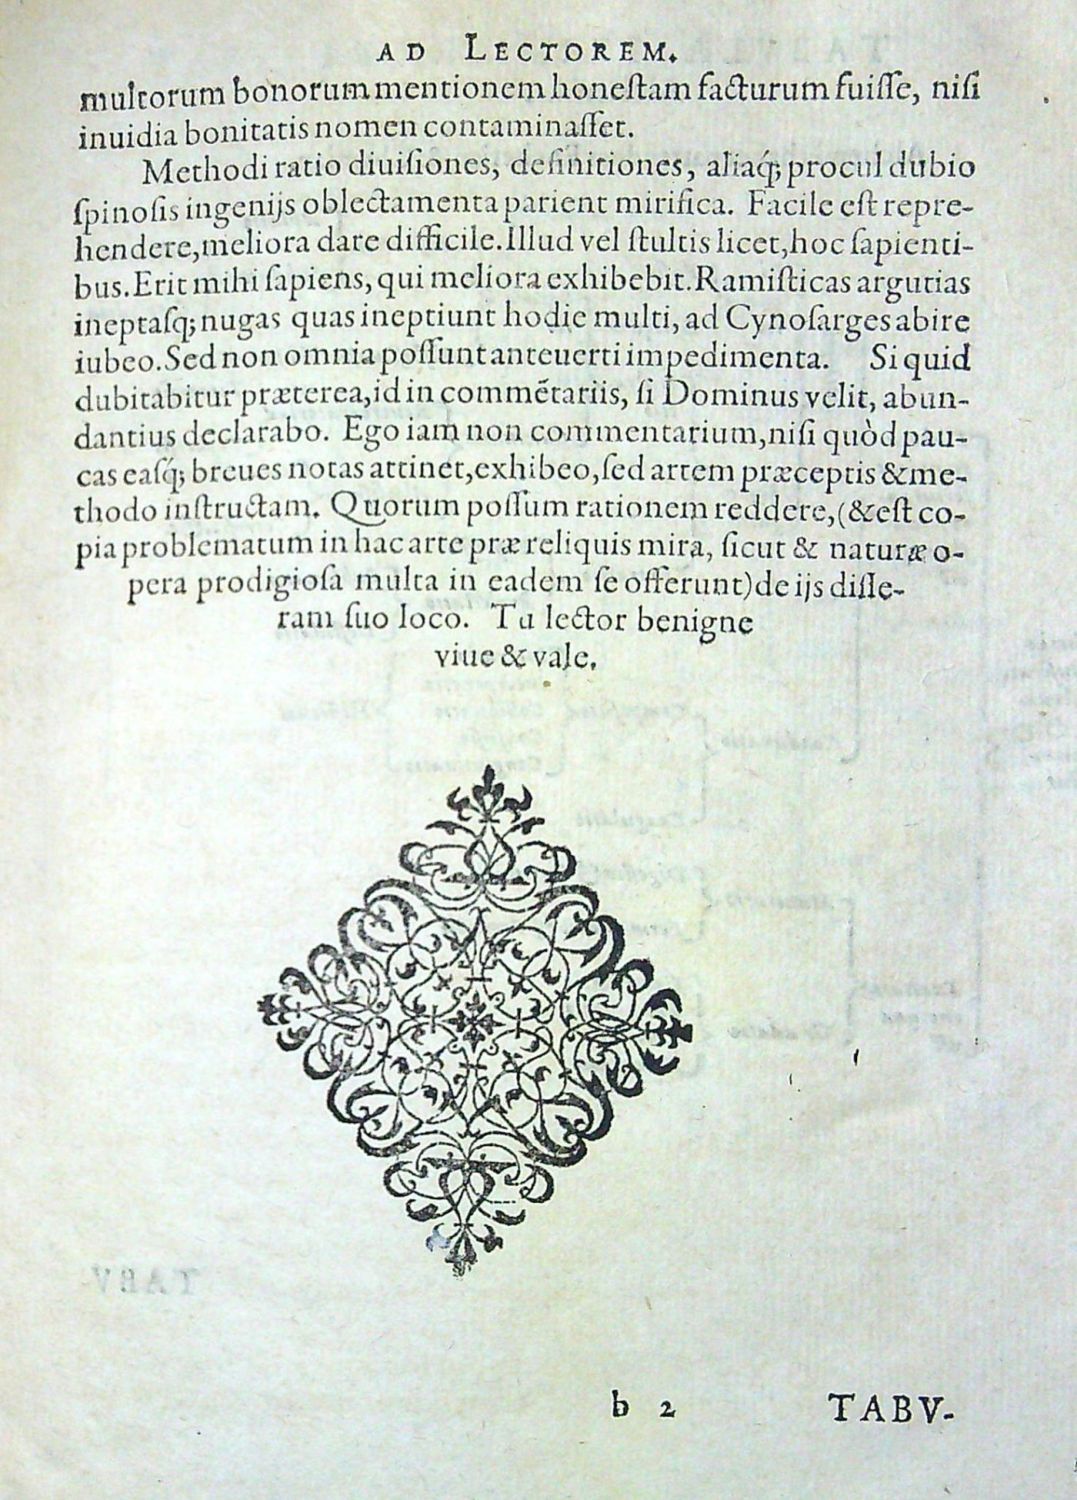 AD LECTOREM.
multorum bonorum mentionem honeſtam facturum fuiſſe, niſi
inuidia bonitatis nomen contaminaſſet.
Methodi ratio diuiſiones, definitiones, aliaq́; procul dubio
ſpinoſis ingenijs oblectamenta parient mirifica. Facile eſt repre-
hendere, meliora dare difficile. Illud vel ſtultis licet, hoc ſapienti-
bus. Erit mihi ſapiens, qui meliora exhibebit. Ramiſticas argutias
ineptaſq; nugas quas ineptiunt hodie multi, ad Cynoſarges abire
iubeo. Sed non omnia poſſunt anteuerti impedimenta. Si quid
dubitabitur præterea, id in commētariis, ſi Dominus velit, abun-
dantius declarabo. Ego iam non commentarium, niſi quòd pau-
cas eaſq́; breues notas attinet, exhibeo, ſed artem præceptis & me-
thodo inſtructam. Quorum poſſum rationem reddere, (& eſt co-
pia problematum in hac arte præ reliquis mira, ſicut & naturæ o-
pera prodigioſa multa in eadem ſe offerunt) de ijs diſſe-
ram ſuo loco. Tu lector benigne
viue & vale.
b 2 TABV-